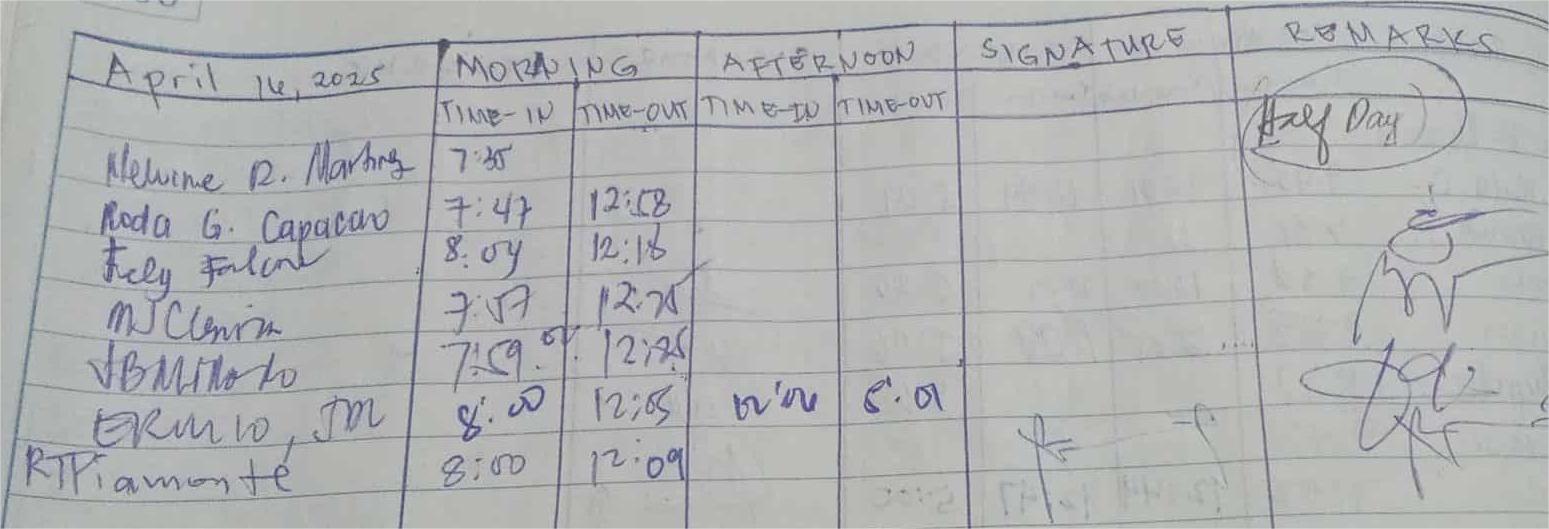 April 16, 2025 MORNING AFTERNOON SIGNATURE REMARKS
TIME-IN TIME-OUT TIME-IN TIME-OUT Half Day
Melvine R. Martinez 7:35
Roda G. Capacao 7:47 12:58
Fely 8:04 12:18
7:57 12:25
7:59 12:25
8:00 12:05 5:01
RTPiamonte 8:00 12:09